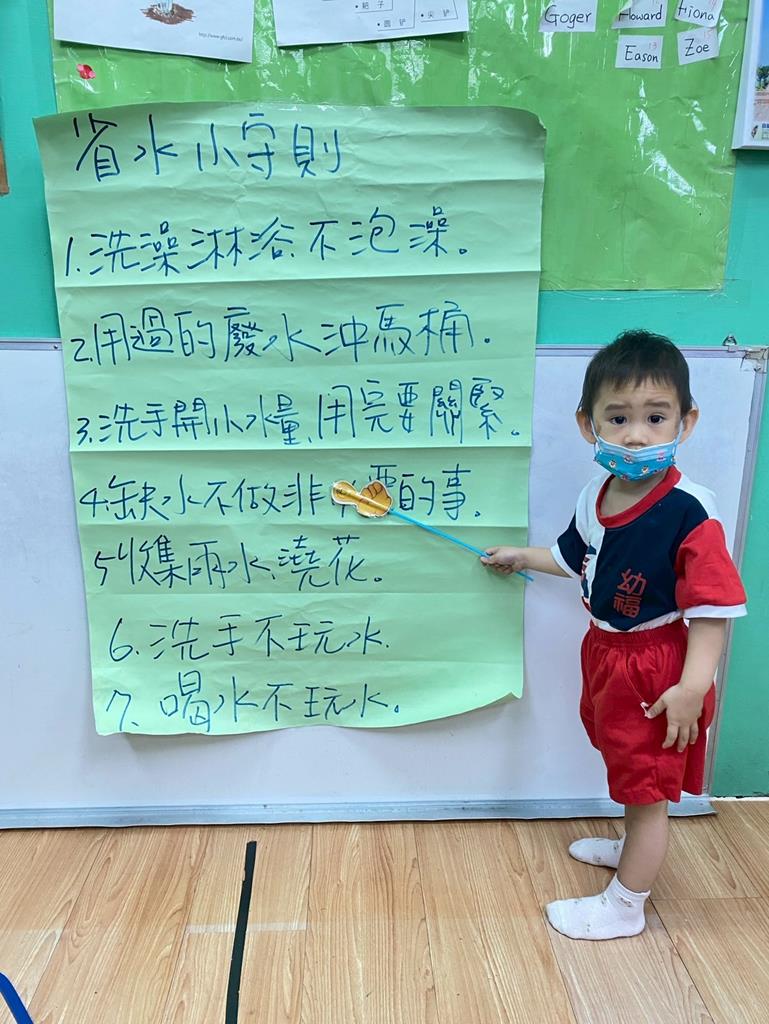 http://www.gfcl.com.tw/
• 耙子
• 圓鏟 • 尖鏟
Goger
Howard
Fiona
Eason
Zoe
省水小守則
1.洗澡淋浴、不泡澡。
2.用過的廢水沖馬桶。
3.洗手開小水量、用完要關緊。
4.缺水不做非要的事。
5.收集雨水、澆花。
6.洗手不玩水.
7.喝水不玩水。
幼福